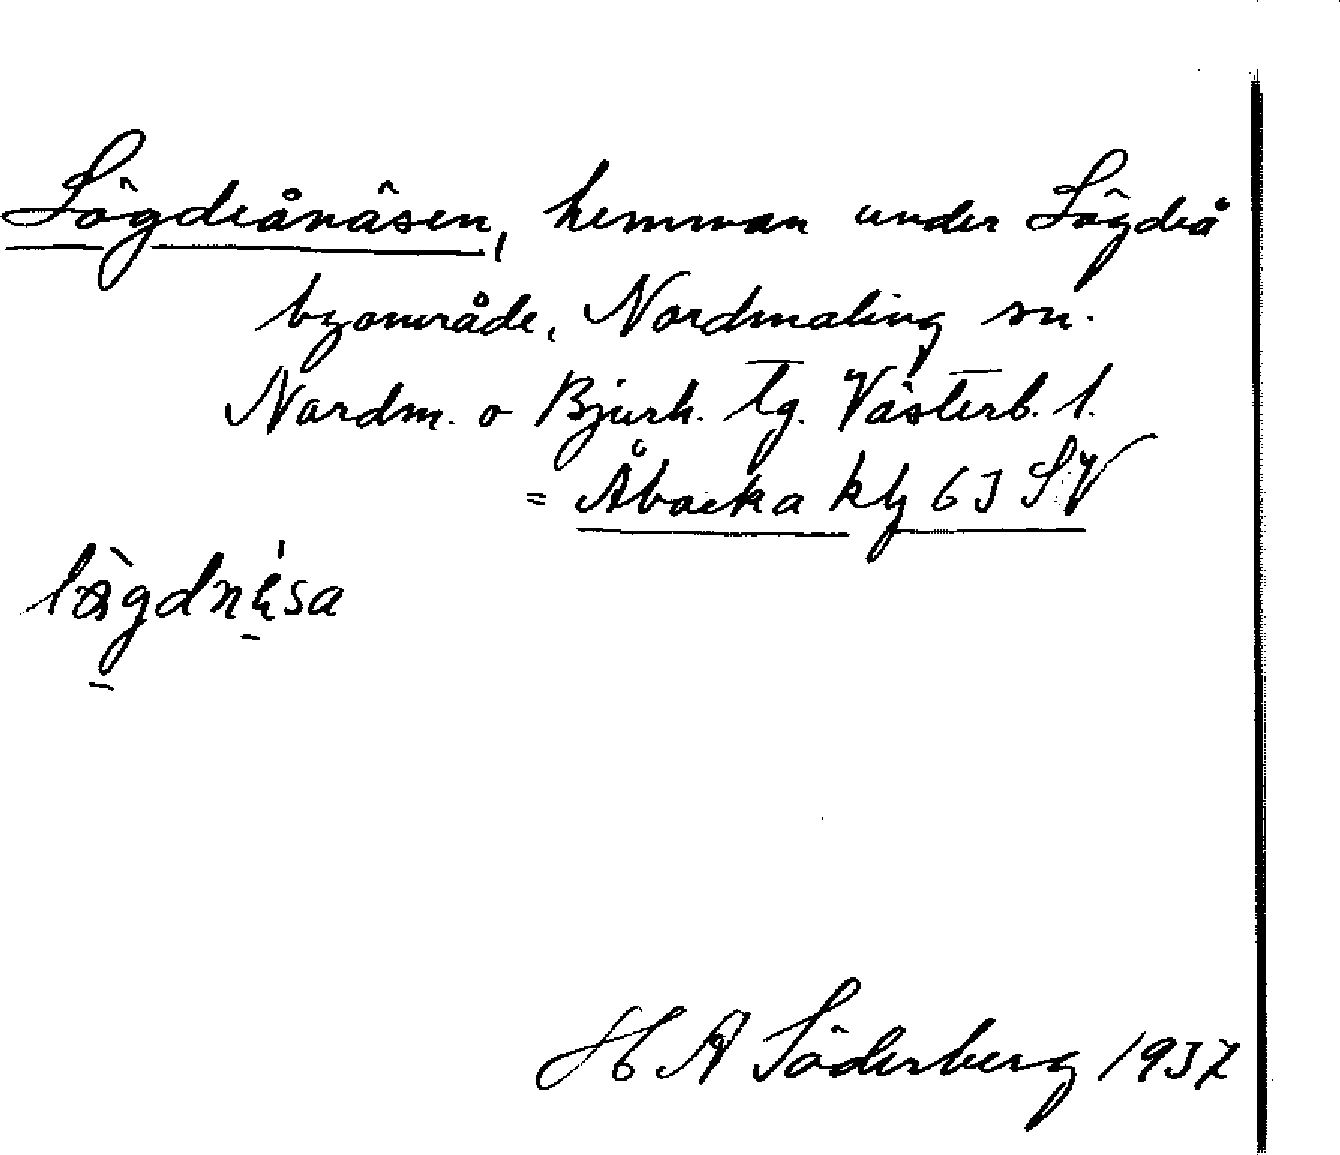 Lögdeånäsen, hemman under Lögdeå
byområde, Nordmaling sn.
Nordm. o Bjurh. tg. Västerb. l.
= Åbacka kbl 63 SV
H A Söderberg 1937